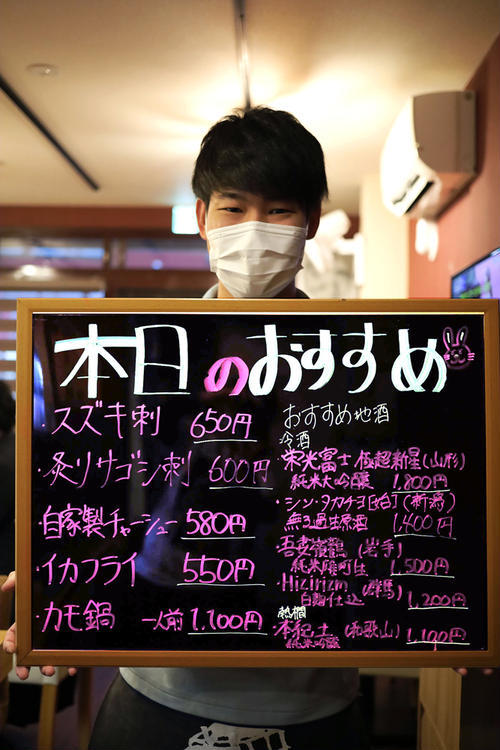 本日のおすすめ
・スズキ刺 650円
・炙りサゴシ刺 600円
・自家製チャーシュー 580円
・イカフライ 550円
・カモ鍋 一人前 1,100円
おすすめ地酒
冷酒
・栄光冨士 極超新星(山形)
純米大吟醸 1,800円
・シン・タカチヨ[始](新潟)
無3過生原酒 1,400円
・吾妻嶺鶴 (岩手)
純米雄町仕 1,500円
・Hizirizm (群馬)
白麹仕込 1,200円
熱燗
・本紀土 (和歌山) 1,100円
純米吟醸